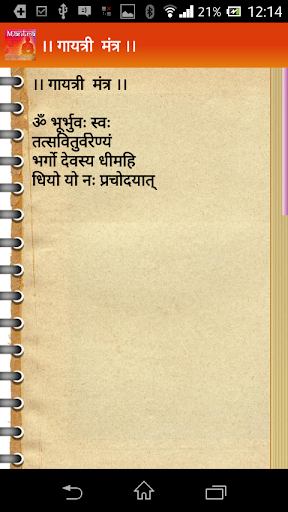 12:14
Mantra
।। गायत्री मंत्र ।।
।। गायत्री मंत्र ।।
ॐ भूर्भुवः स्वः
तत्सवितुर्वरेण्यं
भर्गो देवस्य धीमहि
धियो यो नः प्रचोदयात्